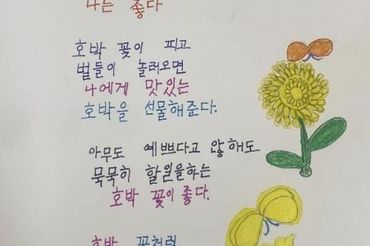 나는 좋다
호박 꽃이 피고
벌들이 놀러오면
나에게 맛있는
호박을 선물해준다.
아무도 예쁘다고 않해도
묵묵히 할일을하는
호박 꽃이 좋다.
호박 꽃처럼